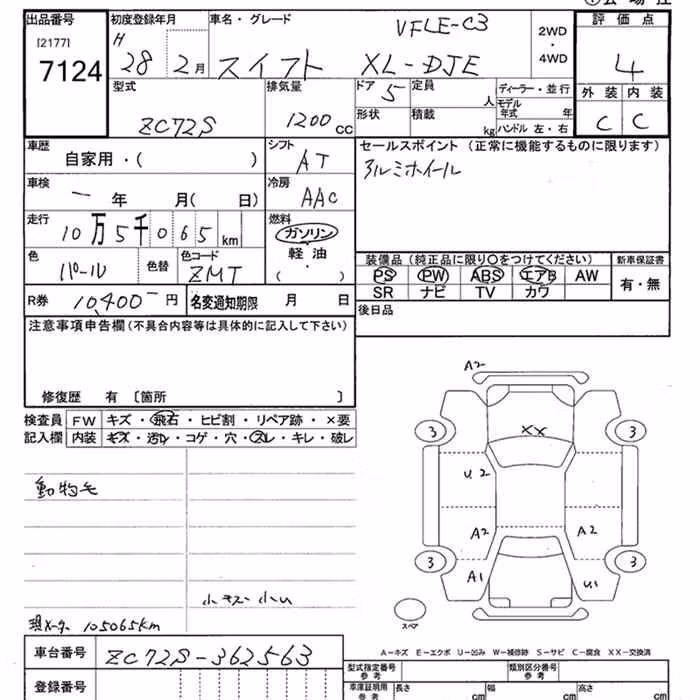 出品番号 初度登録年月 車名・グレード VFLE-C3 評価点
[2177] H 2WD
7124 28 2月 スイフト XL-DJE ・ 4
4WD
型式 排気量 ドア 5 定員 人 ディーラー・並行 外装 内装
ZC72S 1200cc 形状 積載 kg モデル年式 年 C C
ハンドル 左・右
車歴 自家用・( ) シフト AT セールスポイント (正常に機能するものに限ります)
車検 ー 年 月( 日) 冷房 AAC アルミホイール
走行 10万5千065km 燃料 ガソリン
軽油
( )
色 パール 色替 色コード ZMT 装備品 (純正品に限り○をつけてください) 新車保証書
PS PW ABS エアB AW 有・無
SR ナビ TV カワ
R券 10,400- 円 名変通知期限 月 日 後日品
注意事項申告欄(不具合内容等は具体的に記入して下さい)
修復歴 有 〔箇所 〕
検査員 FW キズ・飛石・ヒビ割・リペア跡・×要
記入欄 内装 キズ・汚レ・コゲ・穴・スレ・キレ・破レ
A2
3 XX 3
動物毛 U2
A2 A2
3 3
A1 U1
小キズ小U
スペア
現メーター 105065km
A-キズ E-エクボ U-凹み W-補修跡 S-サビ C-腐食 XX-交換済
車台番号 ZC72S-362563 型式指定番号 類別区分番号
参考 参考
登録番号 車庫証明用 長さ 幅 高さ
参考 cm cm cm